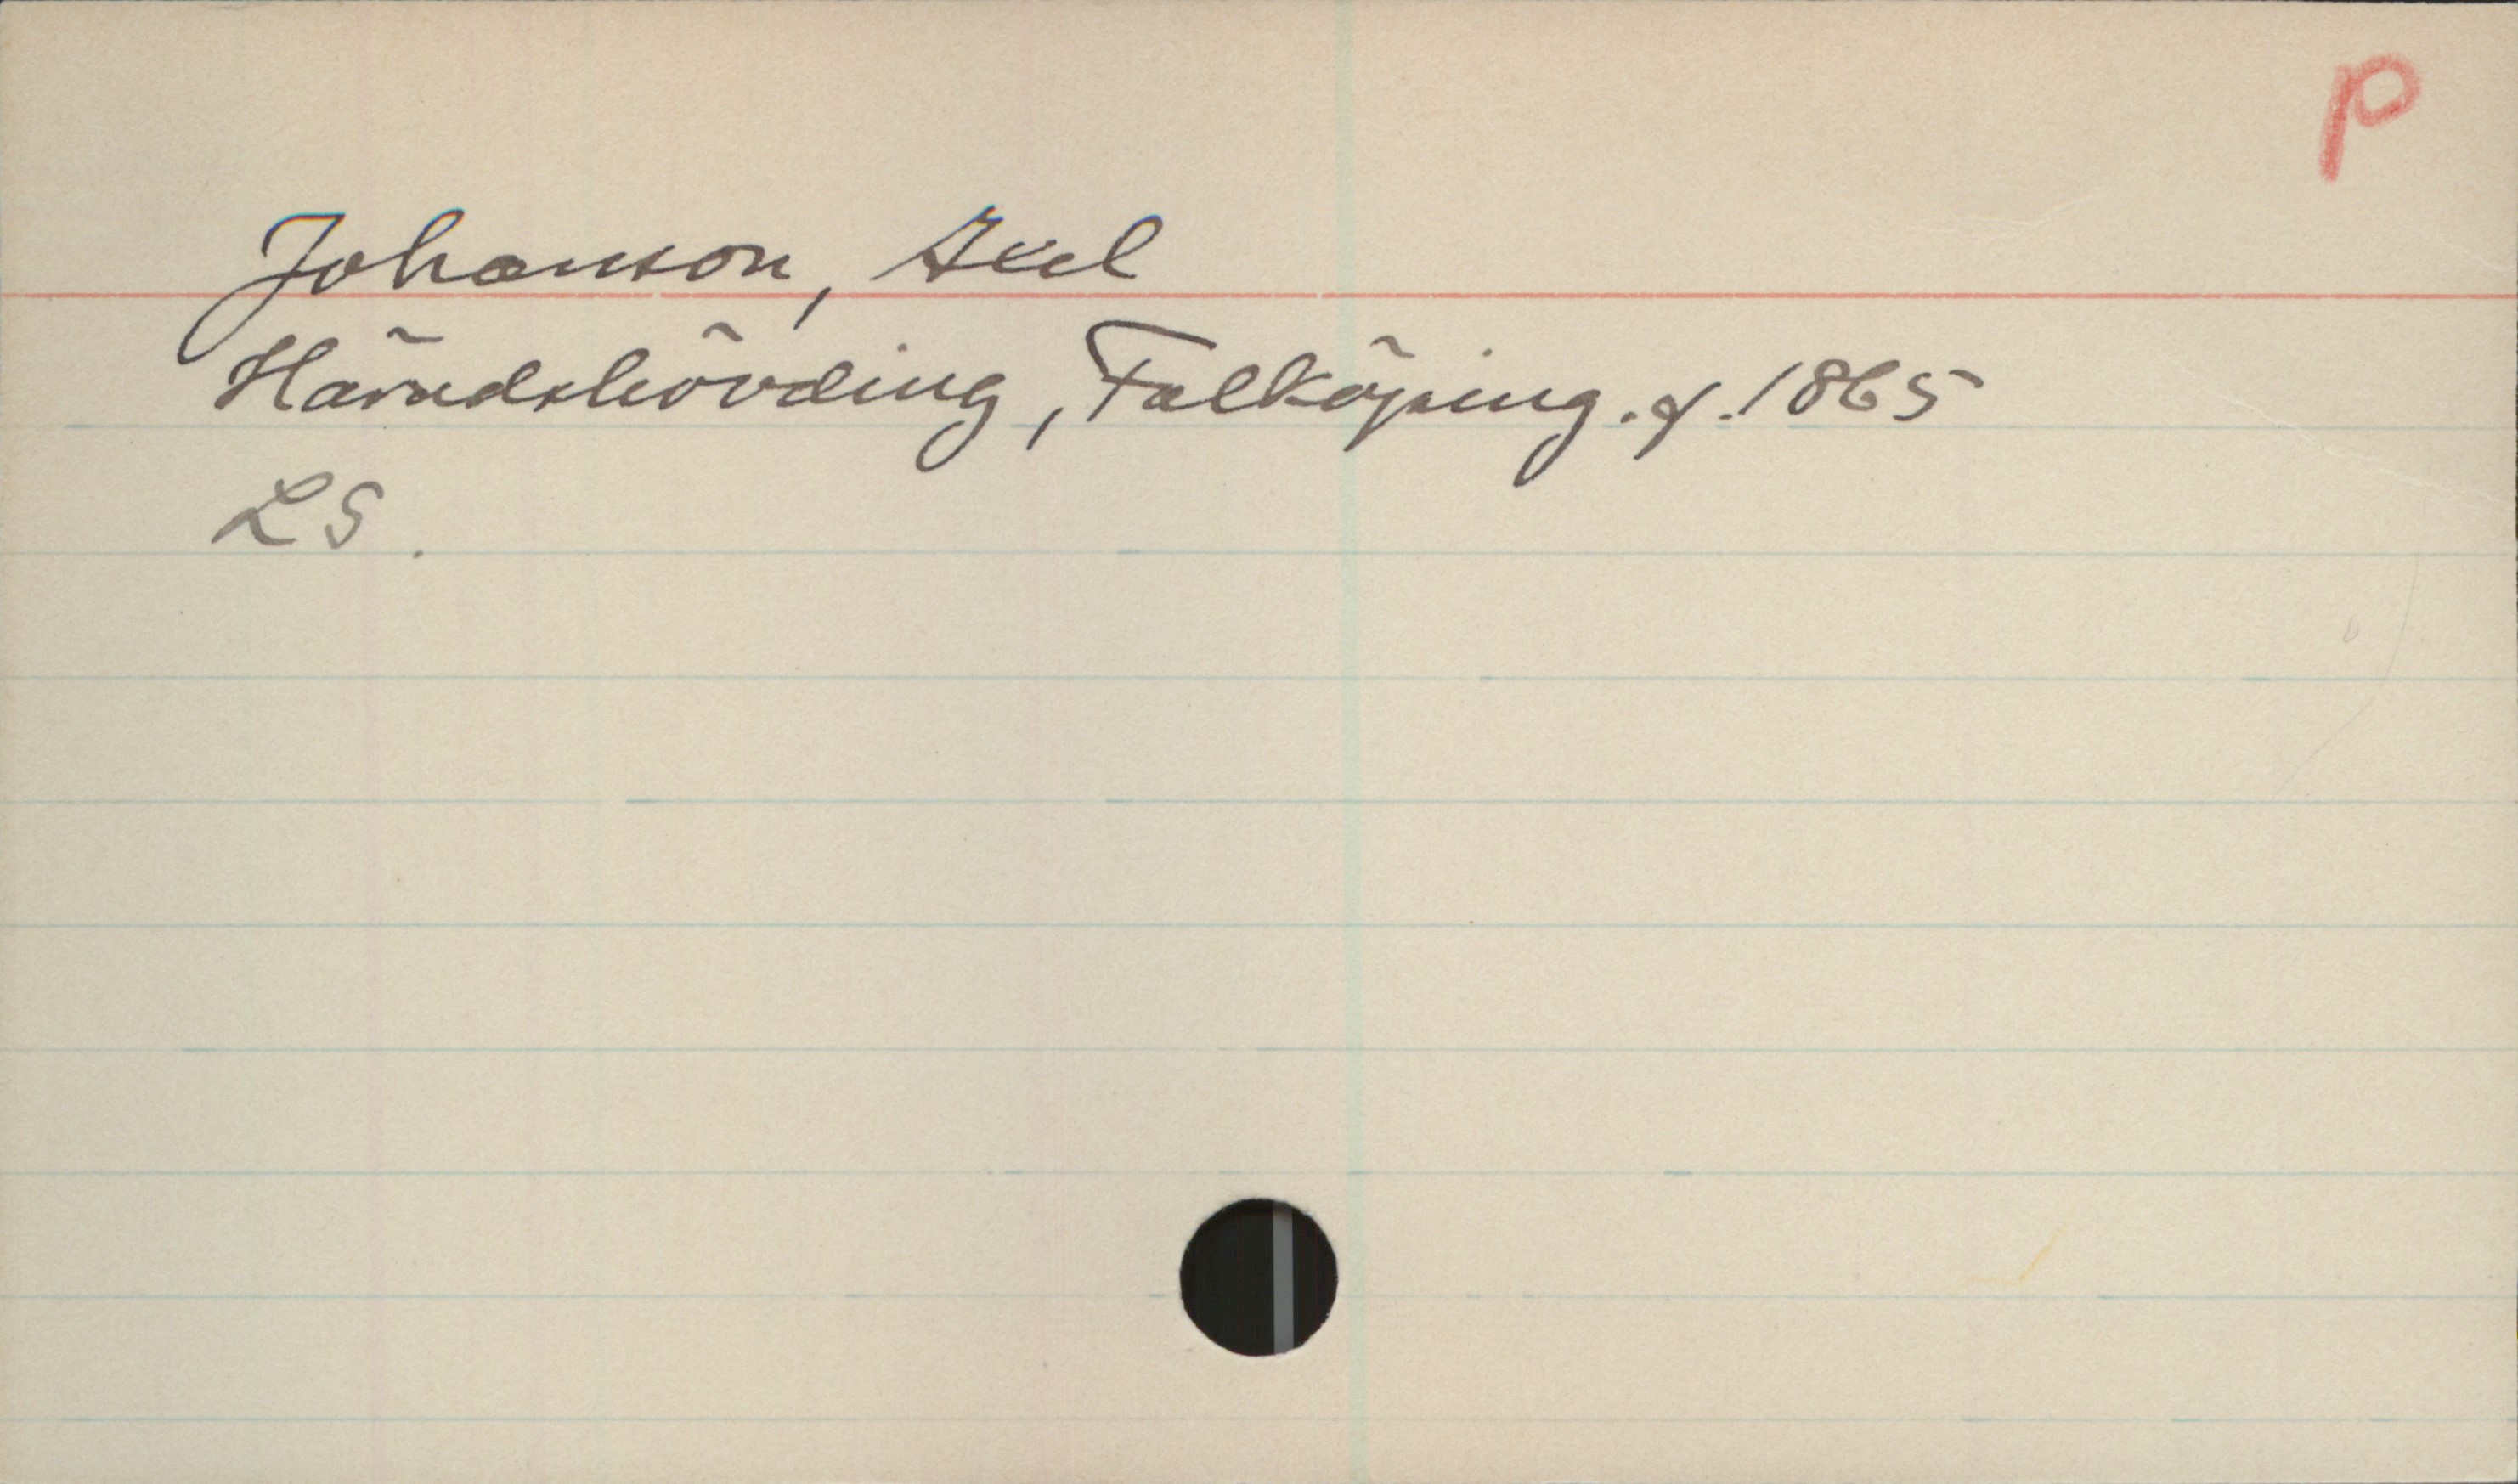 P
Johanson, Axel
Häradshövding, Falköping. f. 1865
LS.